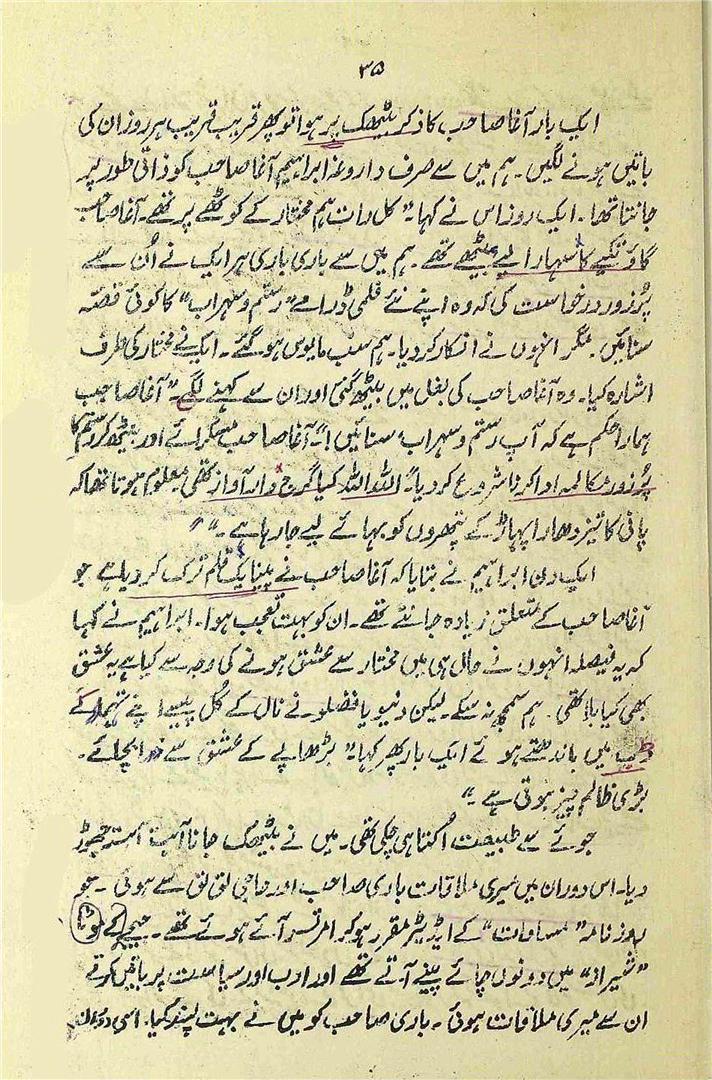 ۳۵
ایک بار آغا صاحب کا ذکر بیٹھک پر ہوا تو پھر قریب قریب ہر روز ان کی
باتیں ہونے لگیں۔ ہم میں سے صرف داروغہ ابراہیم آغا صاحب کو ذاتی طور پر
جانتا تھا۔ ایک روز اس نے کہا۔ "کل رات ہم مختار کے کوٹھے پر تھے۔ آغا صاحب
گاؤ تکیے کا سہارا لیے بیٹھے تھے۔ ہم میں سے باری باری ہر ایک نے اُن سے
پُر زور درخواست کی کہ وہ اپنے نئے فلمی ڈرامے "رستم و سہراب" کا کوئی قصّہ
سنائیں۔ مگر انہوں نے انکار کر دیا۔ ہم سب مایوس ہو گئے۔ ایک نے مختار کی طرف
اشارہ کیا۔ وہ آغا صاحب کی بغل میں بیٹھ گئی اور ان سے کہنے لگی۔ "آغا صاحب
ہمارا حکم ہے کہ آپ رستم و سہراب سنائیں!" آغا صاحب مسکرائے اور بیٹھ کر رستم کا
پُر زور مکالمہ ادا کرنا شروع کر دیا۔ "اللہ اللہ کیا گرج دار آواز تھی۔ معلوم ہوتا تھا کہ
پانی کا تیز دھارا پہاڑ کے پتھروں کو بہائے لیے جا رہا ہے۔" "
ایک دن ابراہیم نے بتایا کہ آغا صاحب نے پینا یک قلم ترک کر دیا ہے جو
آغا صاحب کے متعلق زیادہ جانتے تھے۔ ان کو بہت تعجب ہوا۔ ابراہیم نے کہا
کہ یہ فیصلہ انہوں نے حال ہی میں مختار سے عشق ہونے کی وجہ سے کیا ہے یہ عشق
بھی کیا بلا تھی۔ ہم سمجھ نہ سکے۔ لیکن دینو یا فضلو نے نال کے کُل پیسے اپنے تہمد کے
ڈب میں باندھتے ہوئے ایک بار پھر کہا۔ "بڑھاپے کے عشق سے خدا بچائے۔
بڑی ظالم چیز ہوتی ہے۔"
جوئے سے طبیعت اُکتا ہی چکی تھی۔ میں نے بیٹھک جانا آہستہ آہستہ چھوڑ
دیا۔ اس دوران میں میری ملاقات باری صاحب اور حاجی لق لق سے ہوئی۔ جو
روزنامہ "مساوات" کے ایڈیٹر مقرر ہو کر امرتسر آئے ہوئے تھے۔ جیجے کے ہوٹل
"شیراز" میں دونوں چائے پینے آتے تھے اور ادب اور سیاست پر باتیں کرتے
ان سے میری ملاقات ہوئی۔ باری صاحب کو میں نے بہت پسند کیا۔ اسی دوران